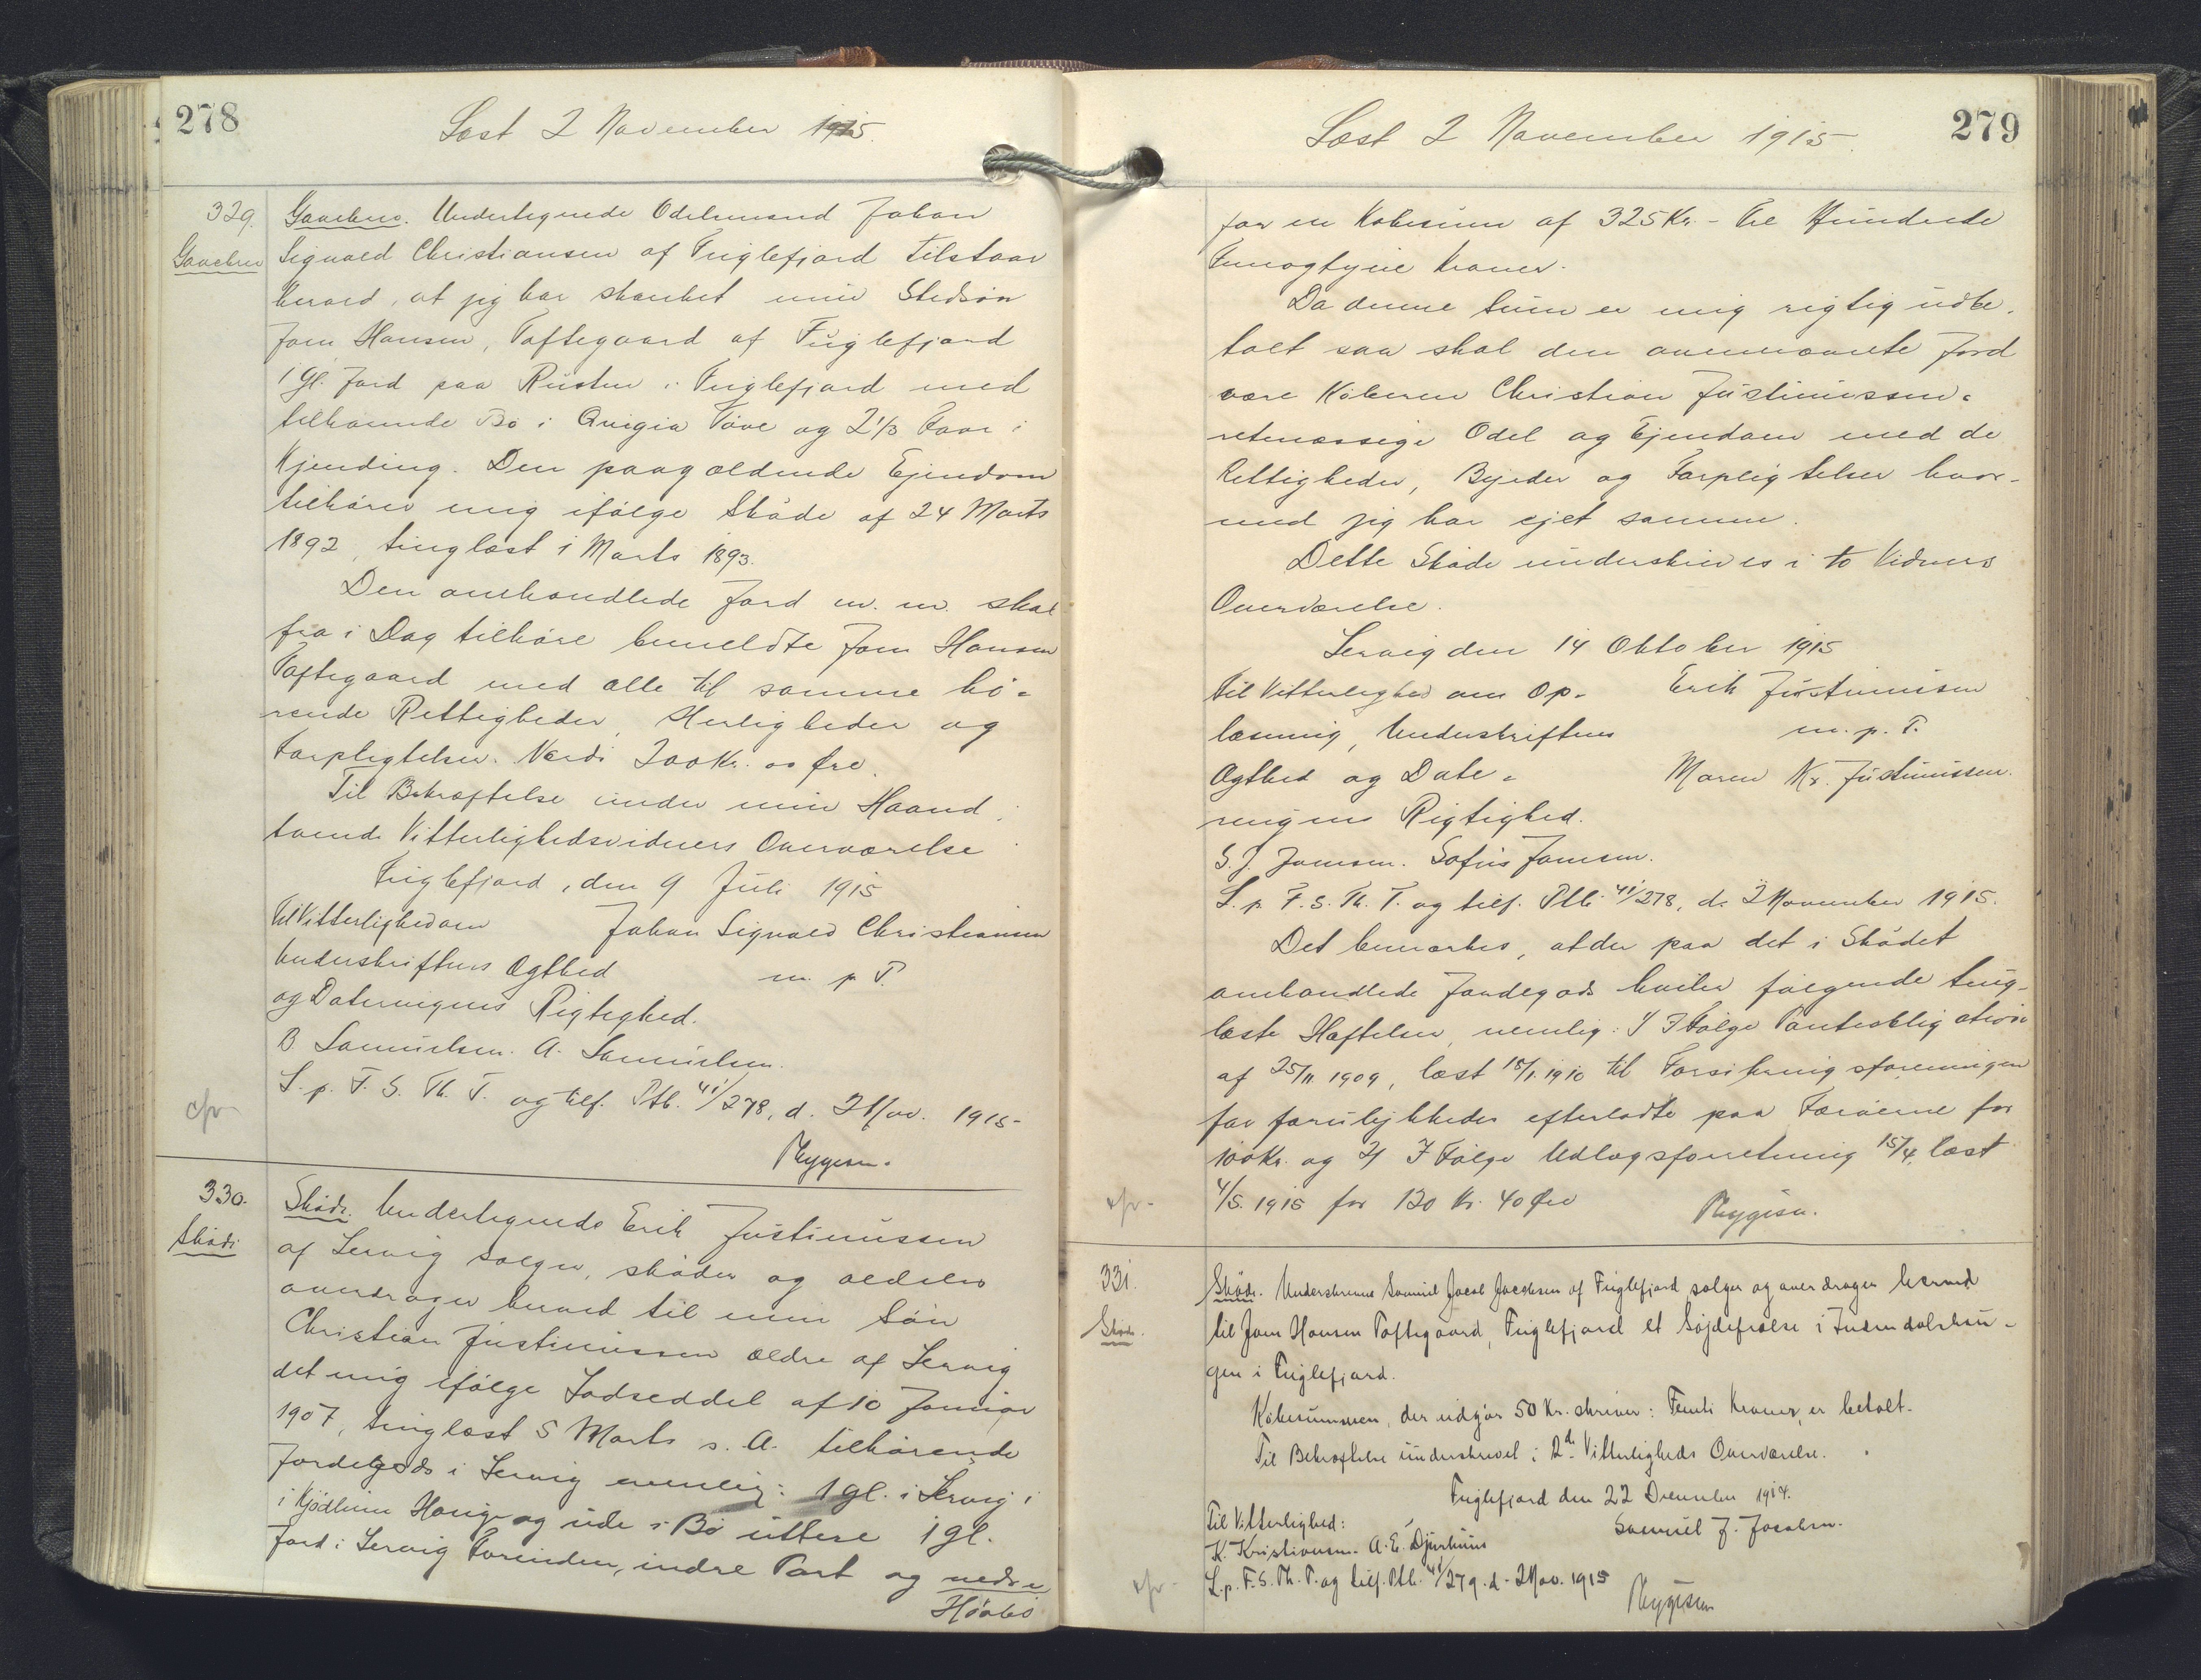 278
Læst 2 November 1915.
329.
Gavebrev
Gavebrev. Undertegnede Odelsmand Johan
Signald Christiansen af Fuglefjord tilstaar
herved, at jeg har skænket min Stedsøn
Joen Hansen, Toftegaard af Fuglefjord
1 Gl. Jord paa Rustin i Fuglefjord med
tilhørende Bø i Qvigia Tøve og 2 1/3 Faar i
Kjending. Den paagældende Ejendom
tilhører mig ifølge Skøde af 24 Marts
1892, tinglæst i Marts 1893.
Den omhandlede Jord m. m. skal
fra i Dag tilhøre bemeldte Joen Hansen
Toftegaard med alle til samme hø-
rende Rettigheder, Herligheder og
Forpligtelser. Værdi 200 Kr. 00 Øre.
Til Bekræftelse under min Haand i
tvende Vitterlighedsvidners Overværelse
Fuglefjord, den 9 Juli 1915
Til Vitterlighed om
Johan Signald Christiansen
Underskriftens Ægthed
m. p. P.
og Dateringens Rigtighed.
B Samuelsen. A. Samuelsen.
L. p. F. S. Th. T. og tilf. Ptb. 41/278, d. 2 Nov. 1915-
cfr-
330.
Skøde
Skøde. Undertegnede Erik Justinussen
af Lervig sælger, skøder og aldeles
overdrager herved til min Søn
Christian Justinussen ældre af Lervig
det mig ifølge Lodseddel af 10 Januar
1907, tinglæst 5 Marts s. A. tilhørende
Jordegods i Lervig nemlig: 1 gl. i Lervig i
i Kjødlum Hauge og ude i Bø uttere 1 gl.
Jord i Lervig Forinden, indre Part og neds i
Høabø
279
Læst 2 November 1915.
for en Købesum af 325 Kr. - Tre Hundrede
Femogtyve Kroner.
Da denne Sum er mig rigtig udbe-
talt saa skal den ovennævnte Jord
være Køberen Christian Justinussens
retmæssige Odel og Ejendom med de
Rettigheder, Byrder og Forpligtelser hvor-
med jeg har ejet samme.
Dette Skøde underskrives i to Vidners
Overværelse.
Lervig den 14 Oktober 1915
Til Vitterlighed om Op-
Erik Justinussen
læsning, Underskriftens
m. p. P.
Ægthed og Date-
Maren Kr. Justinussen.
ringens Rigtighed.
S. J. Joensen. Sofus Joensen.
L. p. F. S. Th. T. og tilf. Ptb. 41/278, d. 2 November 1915.
Det bemærkes, at der paa det i Skødet
omhandlede Jordegods hviler følgende ting-
læste Hæftelser, nemlig: 1/ I Følge Panteobligation
af 25/11 1909, læst 18/1. 1910 til Forsikringsforeningen
for forulykkedes efterladte paa Færøerne for
100 Kr. og 2/ I Følge Udlægsforretning 15/4, læst
4/5. 1915 for 130 Kr. 40 Øre
cfr-
331.
Skøde.
Skøde. Underskrevne Samuel Jacob Jacobsen af Fuglefjord sælger og overdrager herved
til Joen Hansen Toftegaard, Fuglefjord et
i
gen i Fuglefjord.
Købesummen, der udgør 50 Kr. skriver: Femti Kroner, er betalt.
Til Bekræftelse underskrevet i 2de Vitterligheds Overværelse.
Fuglefjord den 22 December 1914.
Til Vitterlighed:
Samuel J. Jacobsen.
K. Kristiansen. A. E. Djurhuus
L. p. F. S. Th. T. og tilf. Ptb. 41/279. d. 2 Nov. 1915
cfr-